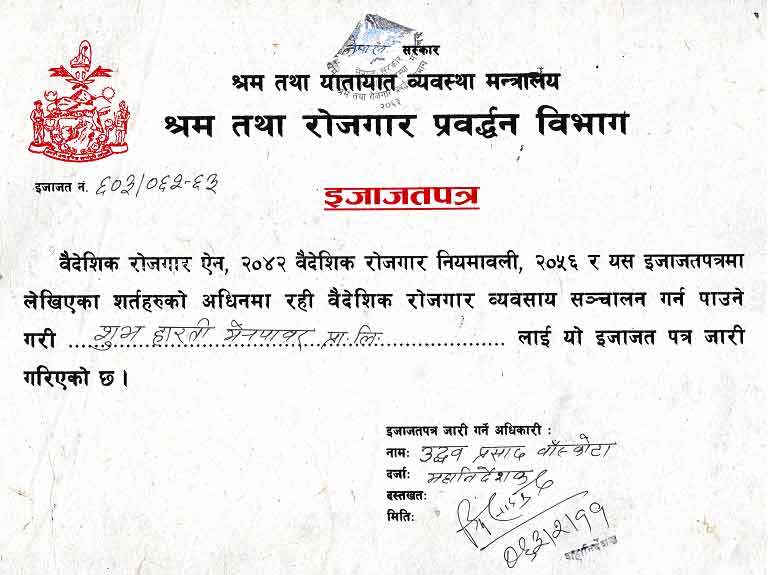 नेपाल सरकार
श्रम तथा यातायात व्यवस्था मन्त्रालय
श्रम तथा रोजगार प्रवर्द्धन विभाग
इजाजत नं. ६०३/०६२-६३
इजाजतपत्र
वैदेशिक रोजगार ऐन, २०४२ वैदेशिक रोजगार नियमावली, २०५६ र यस इजाजतपत्रमा
लेखिएका शर्तहरुको अधिनमा रही वैदेशिक रोजगार व्यवसाय सञ्चालन गर्न पाउने
गरी शुभ हारती मेनपावर प्रा. लि. लाई यो इजाजत पत्र जारी
गरिएको छ ।
इजाजतपत्र जारी गर्ने अधिकारी :
नाम: उद्धव प्रसाद बाँस्कोटा
दर्जा: महानिर्देशक
दस्तखत:
मिति: ०६३/२/११
महानिर्देशक